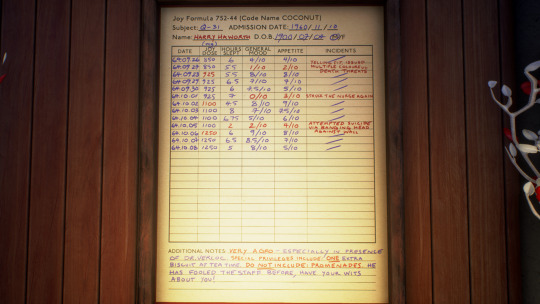 Joy Formula 752-44 (Code Name COCONUT)
Subject: Q-31 ADMISSION DATE: 1960/11/
Name: HARRY HAWORTH D.O.B.
(mg)
DATE JOY DOSE HOURS SLEPT GENERAL MOOD APPETITE INCIDENTS
64.09.26 850 6 6/10 4/10
850 5.5 1/10 2/10 YELLING FIT. ISSUED MULTIPLE COLOURFUL DEATH THREATS
64.09.28 925 5.5 8/10 8/10
64.09.29 925 6.5 7/10 4/10
64.09.30 925 6 7.5/10 5/10
64.10.01 925 7 0/10 STRUCK THE NURSE AGAIN
64.10.02 1100 4.5 8/10 9/10
64.10.03 1100 8 7/10 7.5/10
64.10.04 1100 6.75 5/10 6/10
64.10.05 1100 2 2/10 4/10 ATTEMPTED SUICIDE VIA BANGING HEAD AGAINST WALL
64.10.06 1250 6 9/10 8/10
64.10.07 1250 6.5 8.5/10 7/10
64.10.08 1250 5 8/10 5/10
ADDITIONAL NOTES VERY AGRO - ESPECIALLY IN PRESENCE
OF DR. VERLOC. SPECIAL PRIVILEGES INCLUDE: ONE EXTRA
BISCUIT AT TEA TIME. DO NOT INCLUDE: PROMENADES. HE
HAS FOOLED THE STAFF BEFORE, HAVE YOUR WITS
ABOUT YOU!